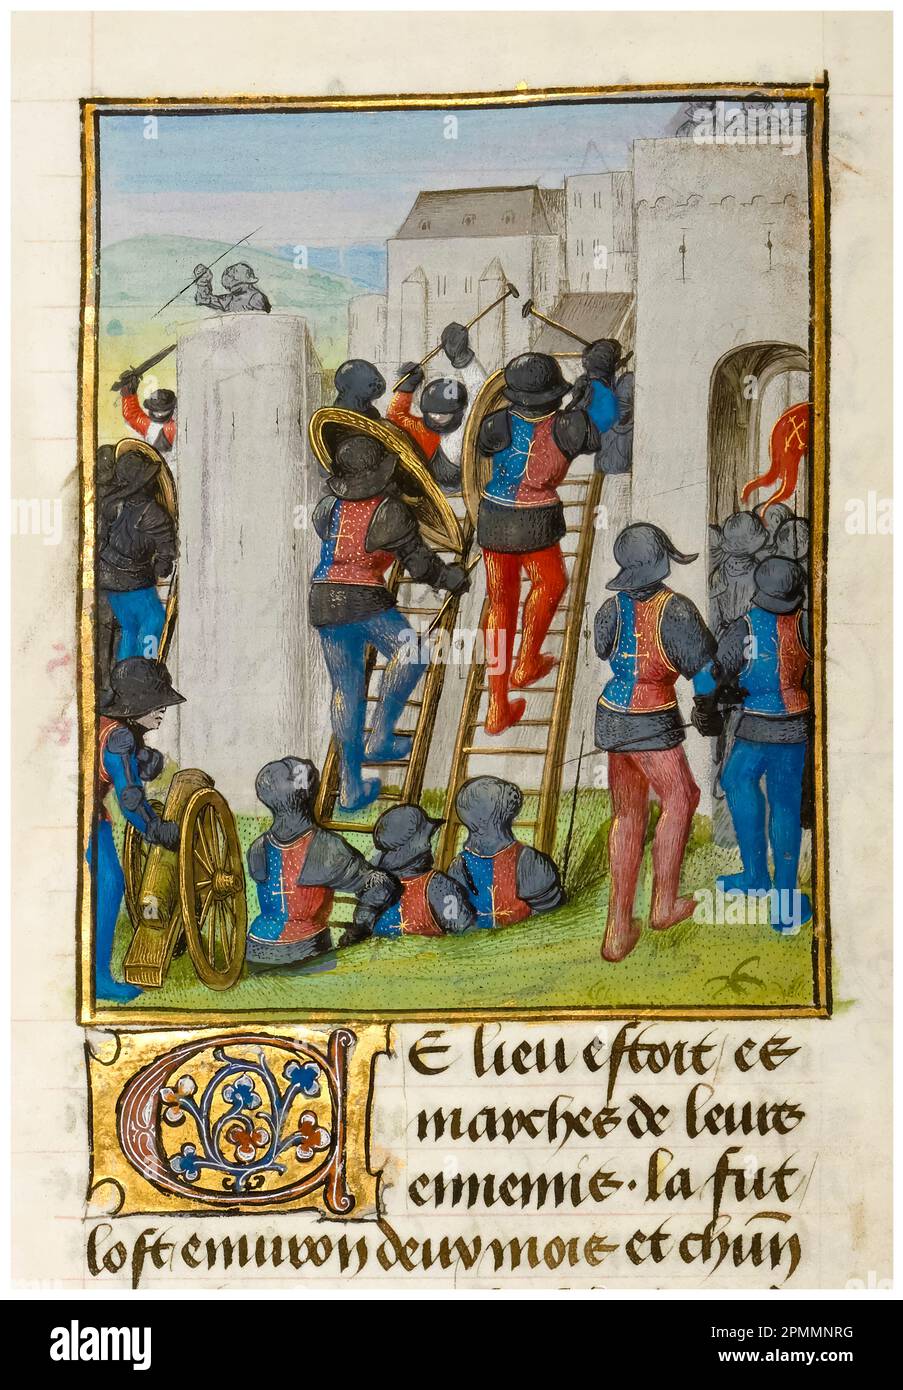 CE lieu estoit es
marches de leurs
ennemis. la fut
lost environ deux mois et chūn
alamy
Image ID: 2PMMNRG
www.alamy.com